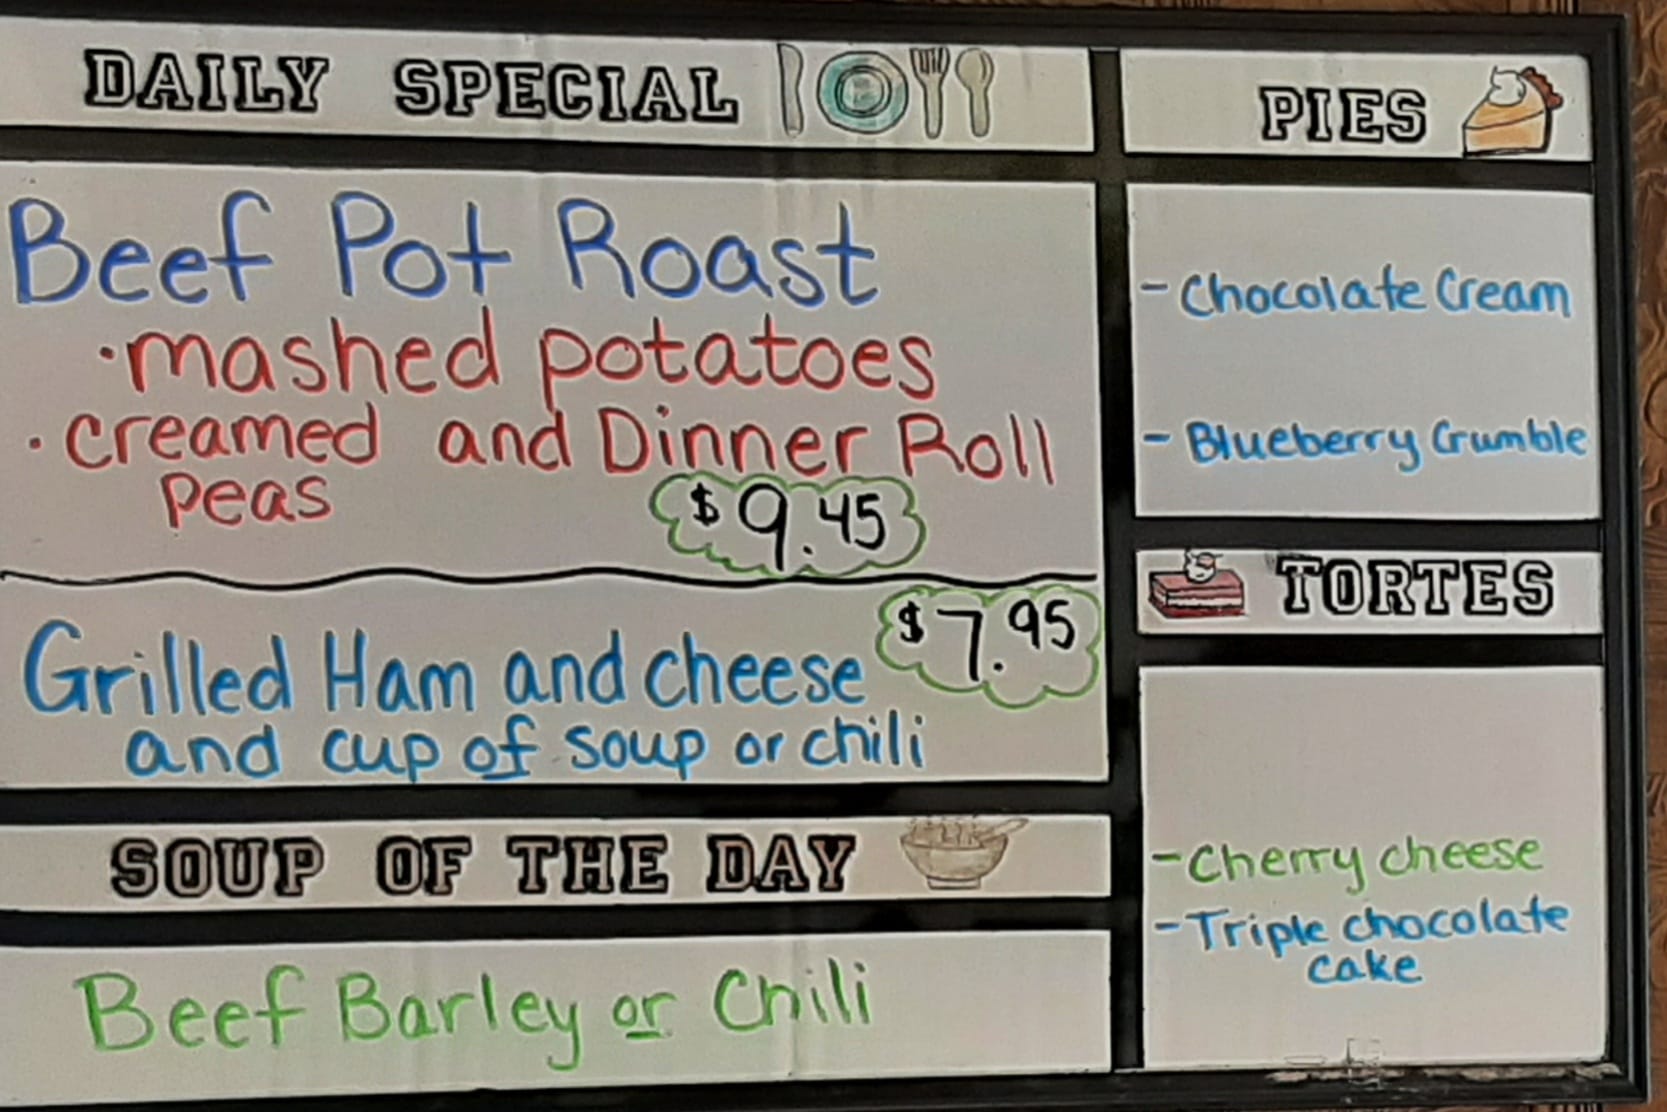 DAILY SPECIAL
Beef Pot Roast
·mashed potatoes
·creamed and Dinner Roll
peas
$9.45
$7.95
Grilled Ham and cheese
and cup of soup or chili
SOUP OF THE DAY
Beef Barley or Chili
PIES
-Chocolate Cream
-Blueberry Crumble
TORTES
-Cherry cheese
-Triple chocolate
cake